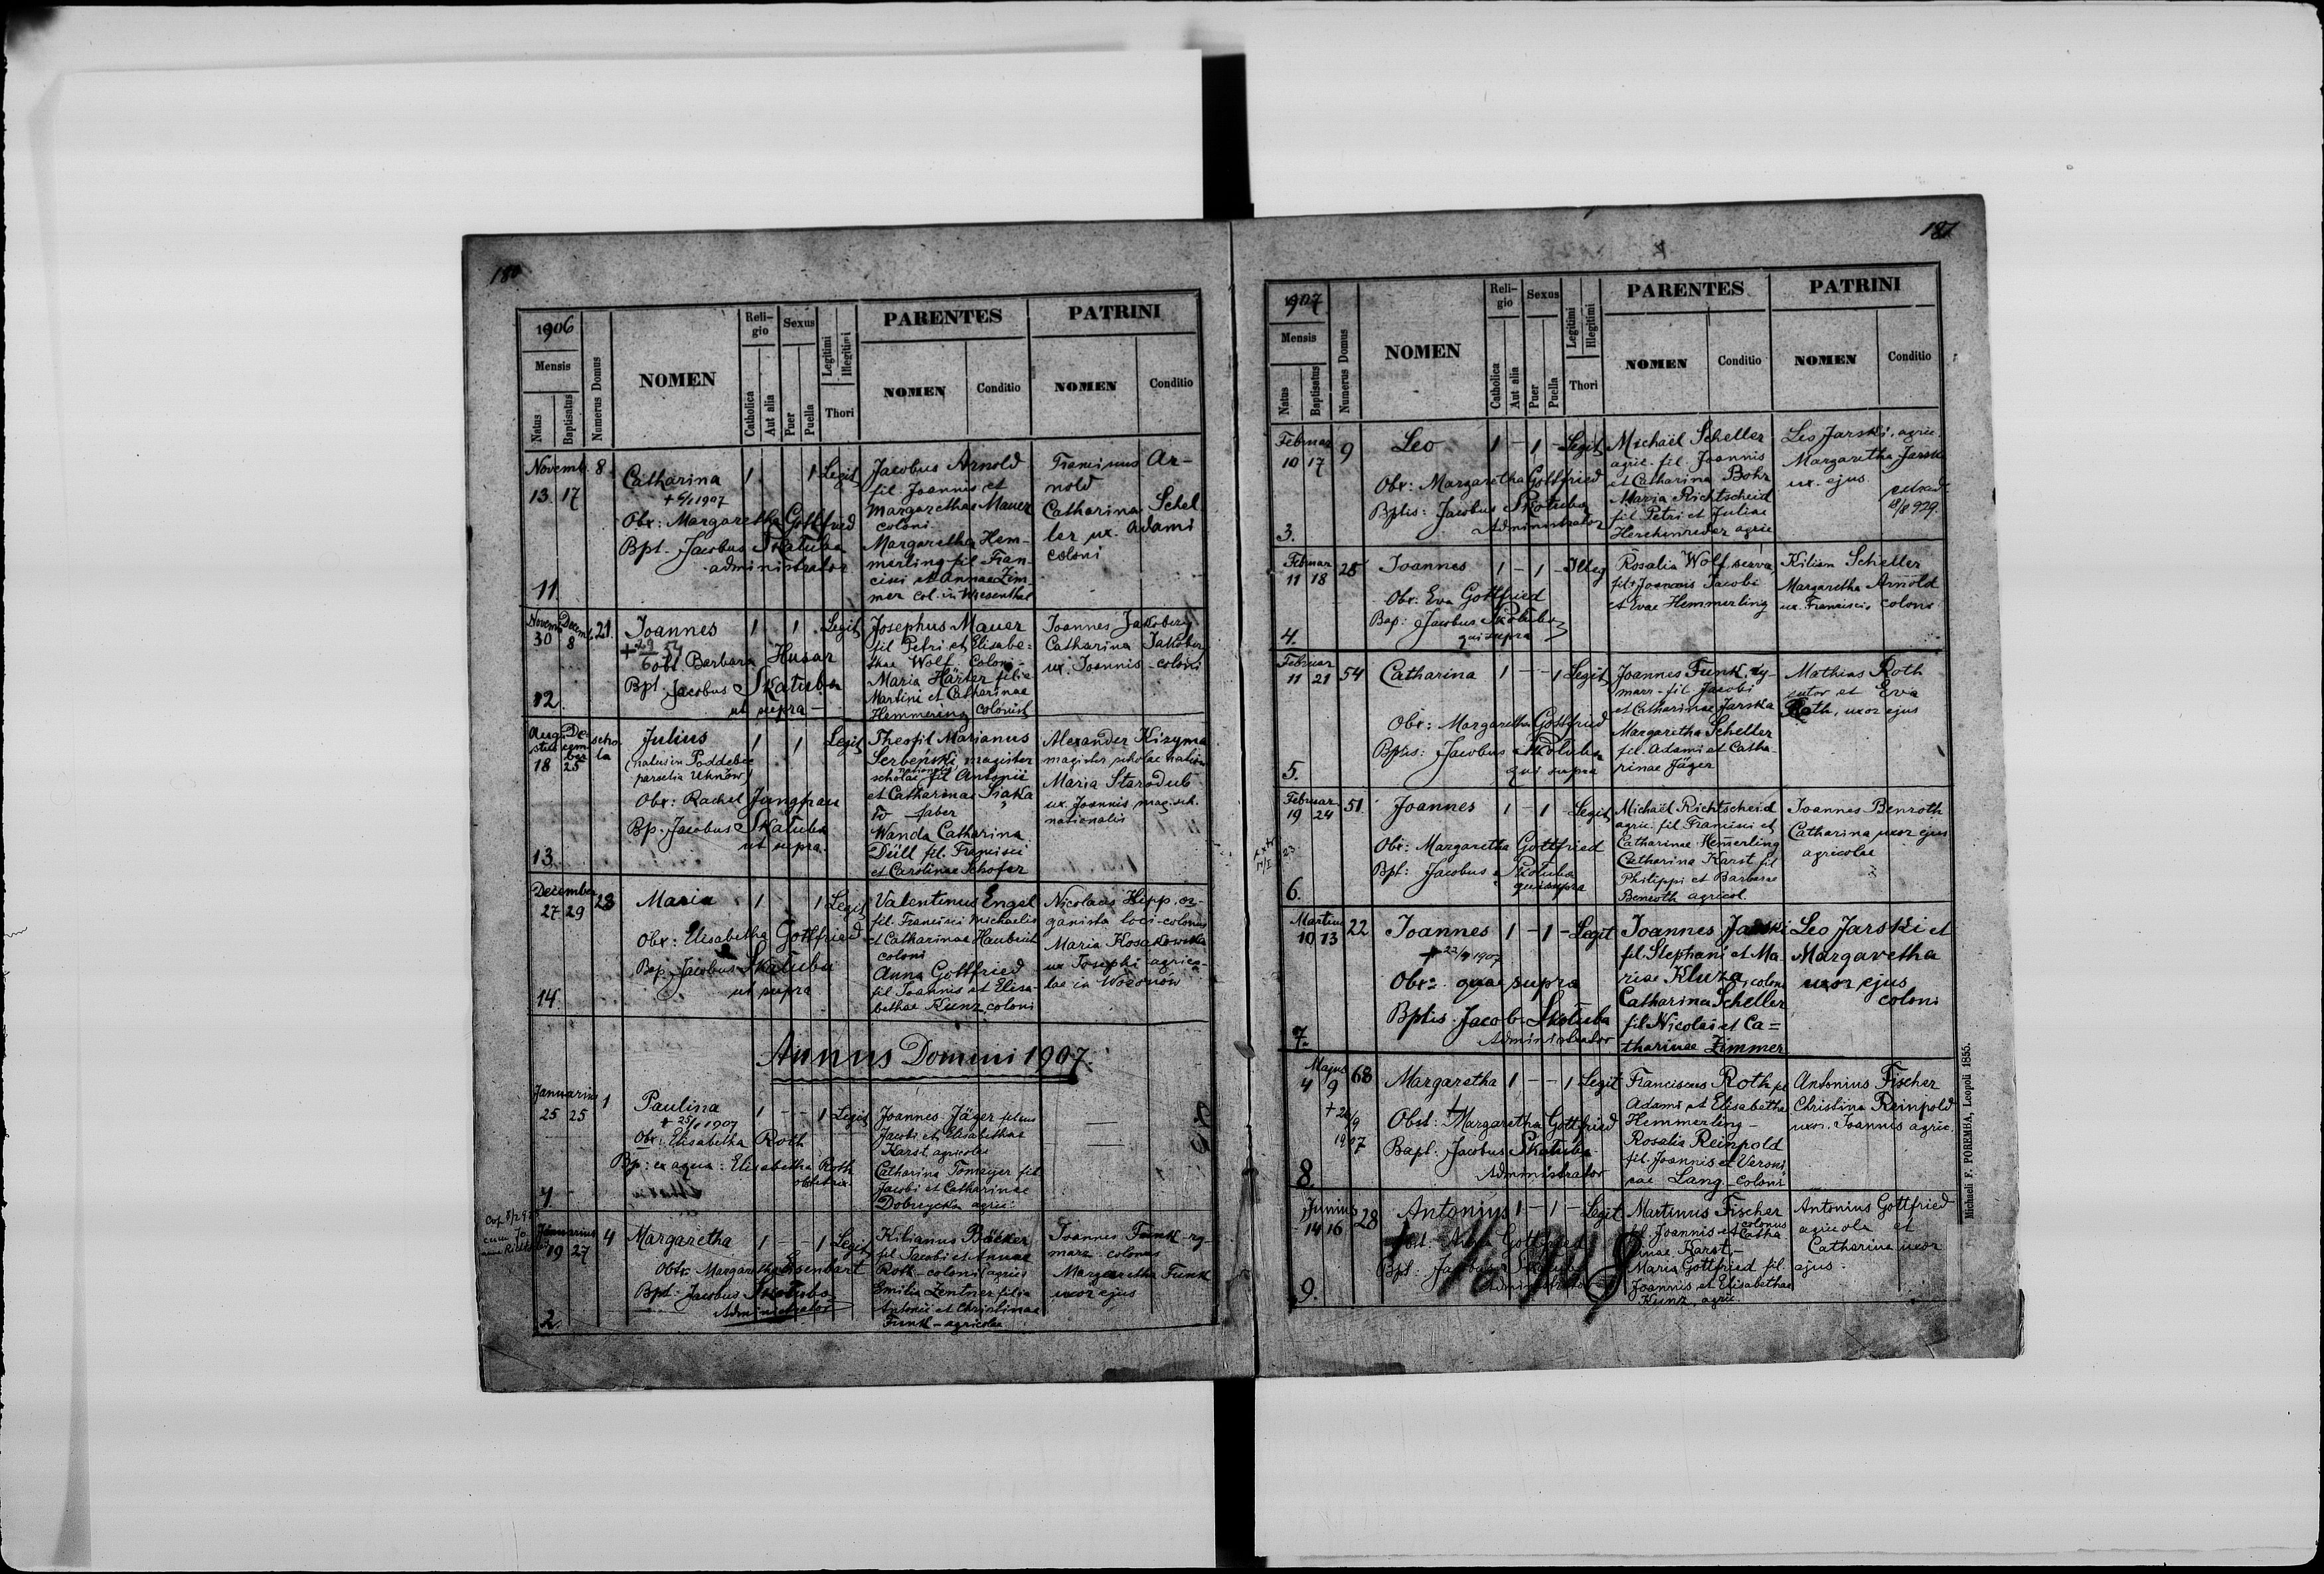 180
1906
Mensis
Natus
Baptisatus
Numerus Domus
NOMEN
Reli-
gio
Catholica
Aut alia
Sexus
Puer
Puella
Legitimi
Illegitimi
Thori
PARENTES
NOMEN
Conditio
PATRINI
NOMEN
Conditio
Novemb. 8
13 17
11.
Catharina 1 1 Legit
+ 6/1 1907
Obx: Margaretha Gottfried
Bpt. Jacobus Skatuba
administrator
Jacobus Arnold
fil Joannis et
Margarethae Mauer
coloni
Margaretha Hem-
merling fil Fran-
cisci et Annae Zim-
mer col. in Wiesenthal
Franciscus Ar-
nold
Catharina Schel
ler ux. Adami
coloni
Novemb. Decemb. 21.
30 8
12
Joannes 1 1 Legit
obt Barbara Husar
Bpt. Jacobus Skatuba
ut supra
Josephus Mauer
fil Petri et Elisabe-
thae Wolf. Coloni-
Maria Härter filia
Martini et Catharinae
Hemmering colonist
Joannes Jakobery
Catharina Jakobery
ux. Joannis - coloni
Augu- De-
stus cem-
ber
18 25
scho
la
13.
Julius 1 1 Legit
(natus in Poddebce
parselia Uhnów)
Obx: Rachel Jungfrau
Bp. Jacobus Skatuba
ut supra.
Theofil Marianus
Serbeński magister
scholae nationalis fil Antonii
et Catharinae Siaka
faber
Wanda Catharina
Düll fil. Francisci
et Carolinae Schofer
Alexander Kizyma
magister scholae nation
Maria Starodub
ux. Joannis mag. sch.
nationalis
December 23
27 29
14
Maria 1 1 Legit
Obx: Elisabetha Gottfried
Bap. Jacobus Skatuba
ut supra
Valentinus Engel
fil. Francisci Michaelis
et Catharinae Haubeint
coloni
Anna Gottfried
fil Joannis et Elisa-
bethae Kunz coloni
Nicolaus Hipp. or-
ganista loci-colonus
Maria Kosakowska
ux Josephi agrico-
lae in Woronów
Annus Domini 1907.
Januarius 1
25 25
1.
Paulina 1 - - 1 Legit
+ 25/1 1907
Obx: Elisabetha Roth
Bp: ex aqua: Elisabetha Roth
obstetrix.
Joannes Jäger filius
Jacobi et Elisabethae
Karst, agricolae
Catharina Tomayer fil
Jacobi et Catharinae
Dobrycka agric.
Januarius 4
19 27
2
Margaretha 1 - - 1 Legit
Obtx Margaretha Eisenbart
Bpt. Jacobus Skatuba
Administrator
Kilianus Bäcker
fil Jacobi et Annae
Roth - coloni (agric)
Emilia Zentner filia
Antonii et Christinae
Funk - agricolae
Joannes Funk -ry-
marz - colonus
Margaretha Funk
uxor ejus
187
1907
Mensis
Natus
Baptisatus
Numerus Domus
NOMEN
Reli-
gio
Catholica
Aut alia
Sexus
Puer
Puella
Legitimi
Illegitimi
Thori
PARENTES
NOMEN
Conditio
PATRINI
NOMEN
Conditio
Februar 9
10 17
3.
Leo 1 - 1 - Legit
Obx: Margaretha Gottfried
Bptis: Jacobus Skotuba
Administrator
Michaël Scheller
agric. fil Joannis
et Catharina Bohr
Maria Richtscheid
fil. Petri et Juliae
Herchenreder agric
Leo Jarski, agric.
Margaretha Jarski
ux. ejus
8/8 929.
Februar 28
11 18
4.
Joannes 1 - 1 - Illeg
Obx: Eva Gottfried
Bap: Jacobus Skotuba
qui supra
Rosalia Wolf serva,
filia Joannis Jacobi
et Evae Hemmerling
Kilian Scheller
Margaretha Arnold
ux. Francisci coloni
Februar 54
11 21
5.
Catharina 1 - - 1 Legit
Obx: Margaretha Gottfried
Bptis: Jacobus Skotuba
qui supra
Joannes Funk, ry-
marz - fil Jacobi
et Catharinae Jarska
Margaretha Scheller
fil. Adami et Catha-
rinae Jäger
Mathias Roth
sutor et Eva
Roth, uxor ejus
Februar 51.
19 24
6.
Joannes 1 - 1 - Legit
Obx: Margaretha Gottfried
Bpt: Jacobus Skotuba
qui supra
Michaël Richtscheid
agric. fil Francisci et
Catharinae Hemerling
Catharina Karst fil
Philippi et Barbarae
Benroth agricol.
Joannes Benroth
Catharina uxor ejus
agricolae
Martius 22
10 13
7.
Joannes 1 - 1 - Legit
Obx: quae supra
Bptis. Jacob Skotuba
Administrator
Joannes Jarski
fil. Stephani et Ma-
riae Kluza, coloni
Catharina Scheller
fil Nicolai et Ca=
tharinae Zimmer
Leo Jarski et
Margaretha
uxor ejus
coloni
Majus 68
4 9
+ 20/9
1907
8.
Margaretha 1 - - 1 Legit
Obst: Margaretha Gottfried
Bapt. Jacobus Skatuba
Administrator
Franciscus Roth fil
Adami et Elisabetha
Hemmerling -
Rosalia Reinpold
fil. Joannis et Veroni-
cae Lang - coloni
Antonius Fischer
Christina Reinpold
uxor. Joannis agric.
Junius 28
14 16
9.
Antonius 1 - 1 - Legit
Bpt: Jacobus Skatuba
Administrator
Martinus Fischer
fil. Joannis et colonus Catha
rinae Karst -
Maria Gottfried fil.
Joannis et Elisabethae
Kunz, agric.
Antonius Gottfried
agricola et
Catharina uxor
ejus.
Michaeli F. POREMBA, Leopoli 1855.